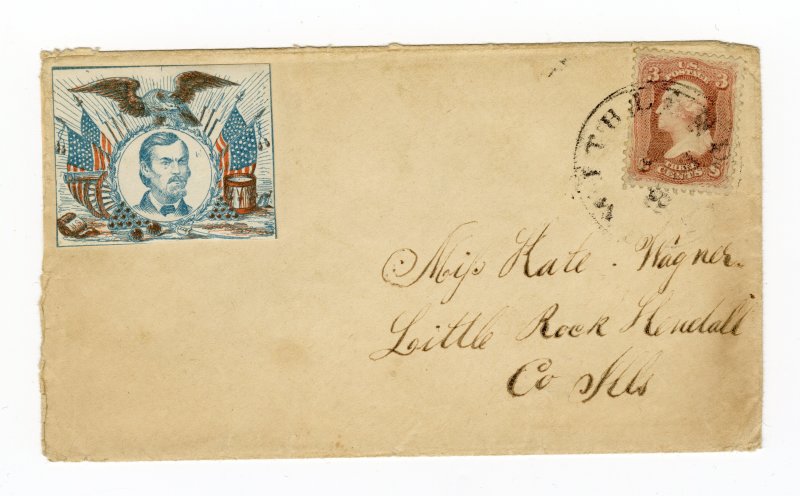 3 U.S. 3
POSTAGE
THREE
CENTS
Miss Kate Wagner.
Little Rock Kendall
Co Ills